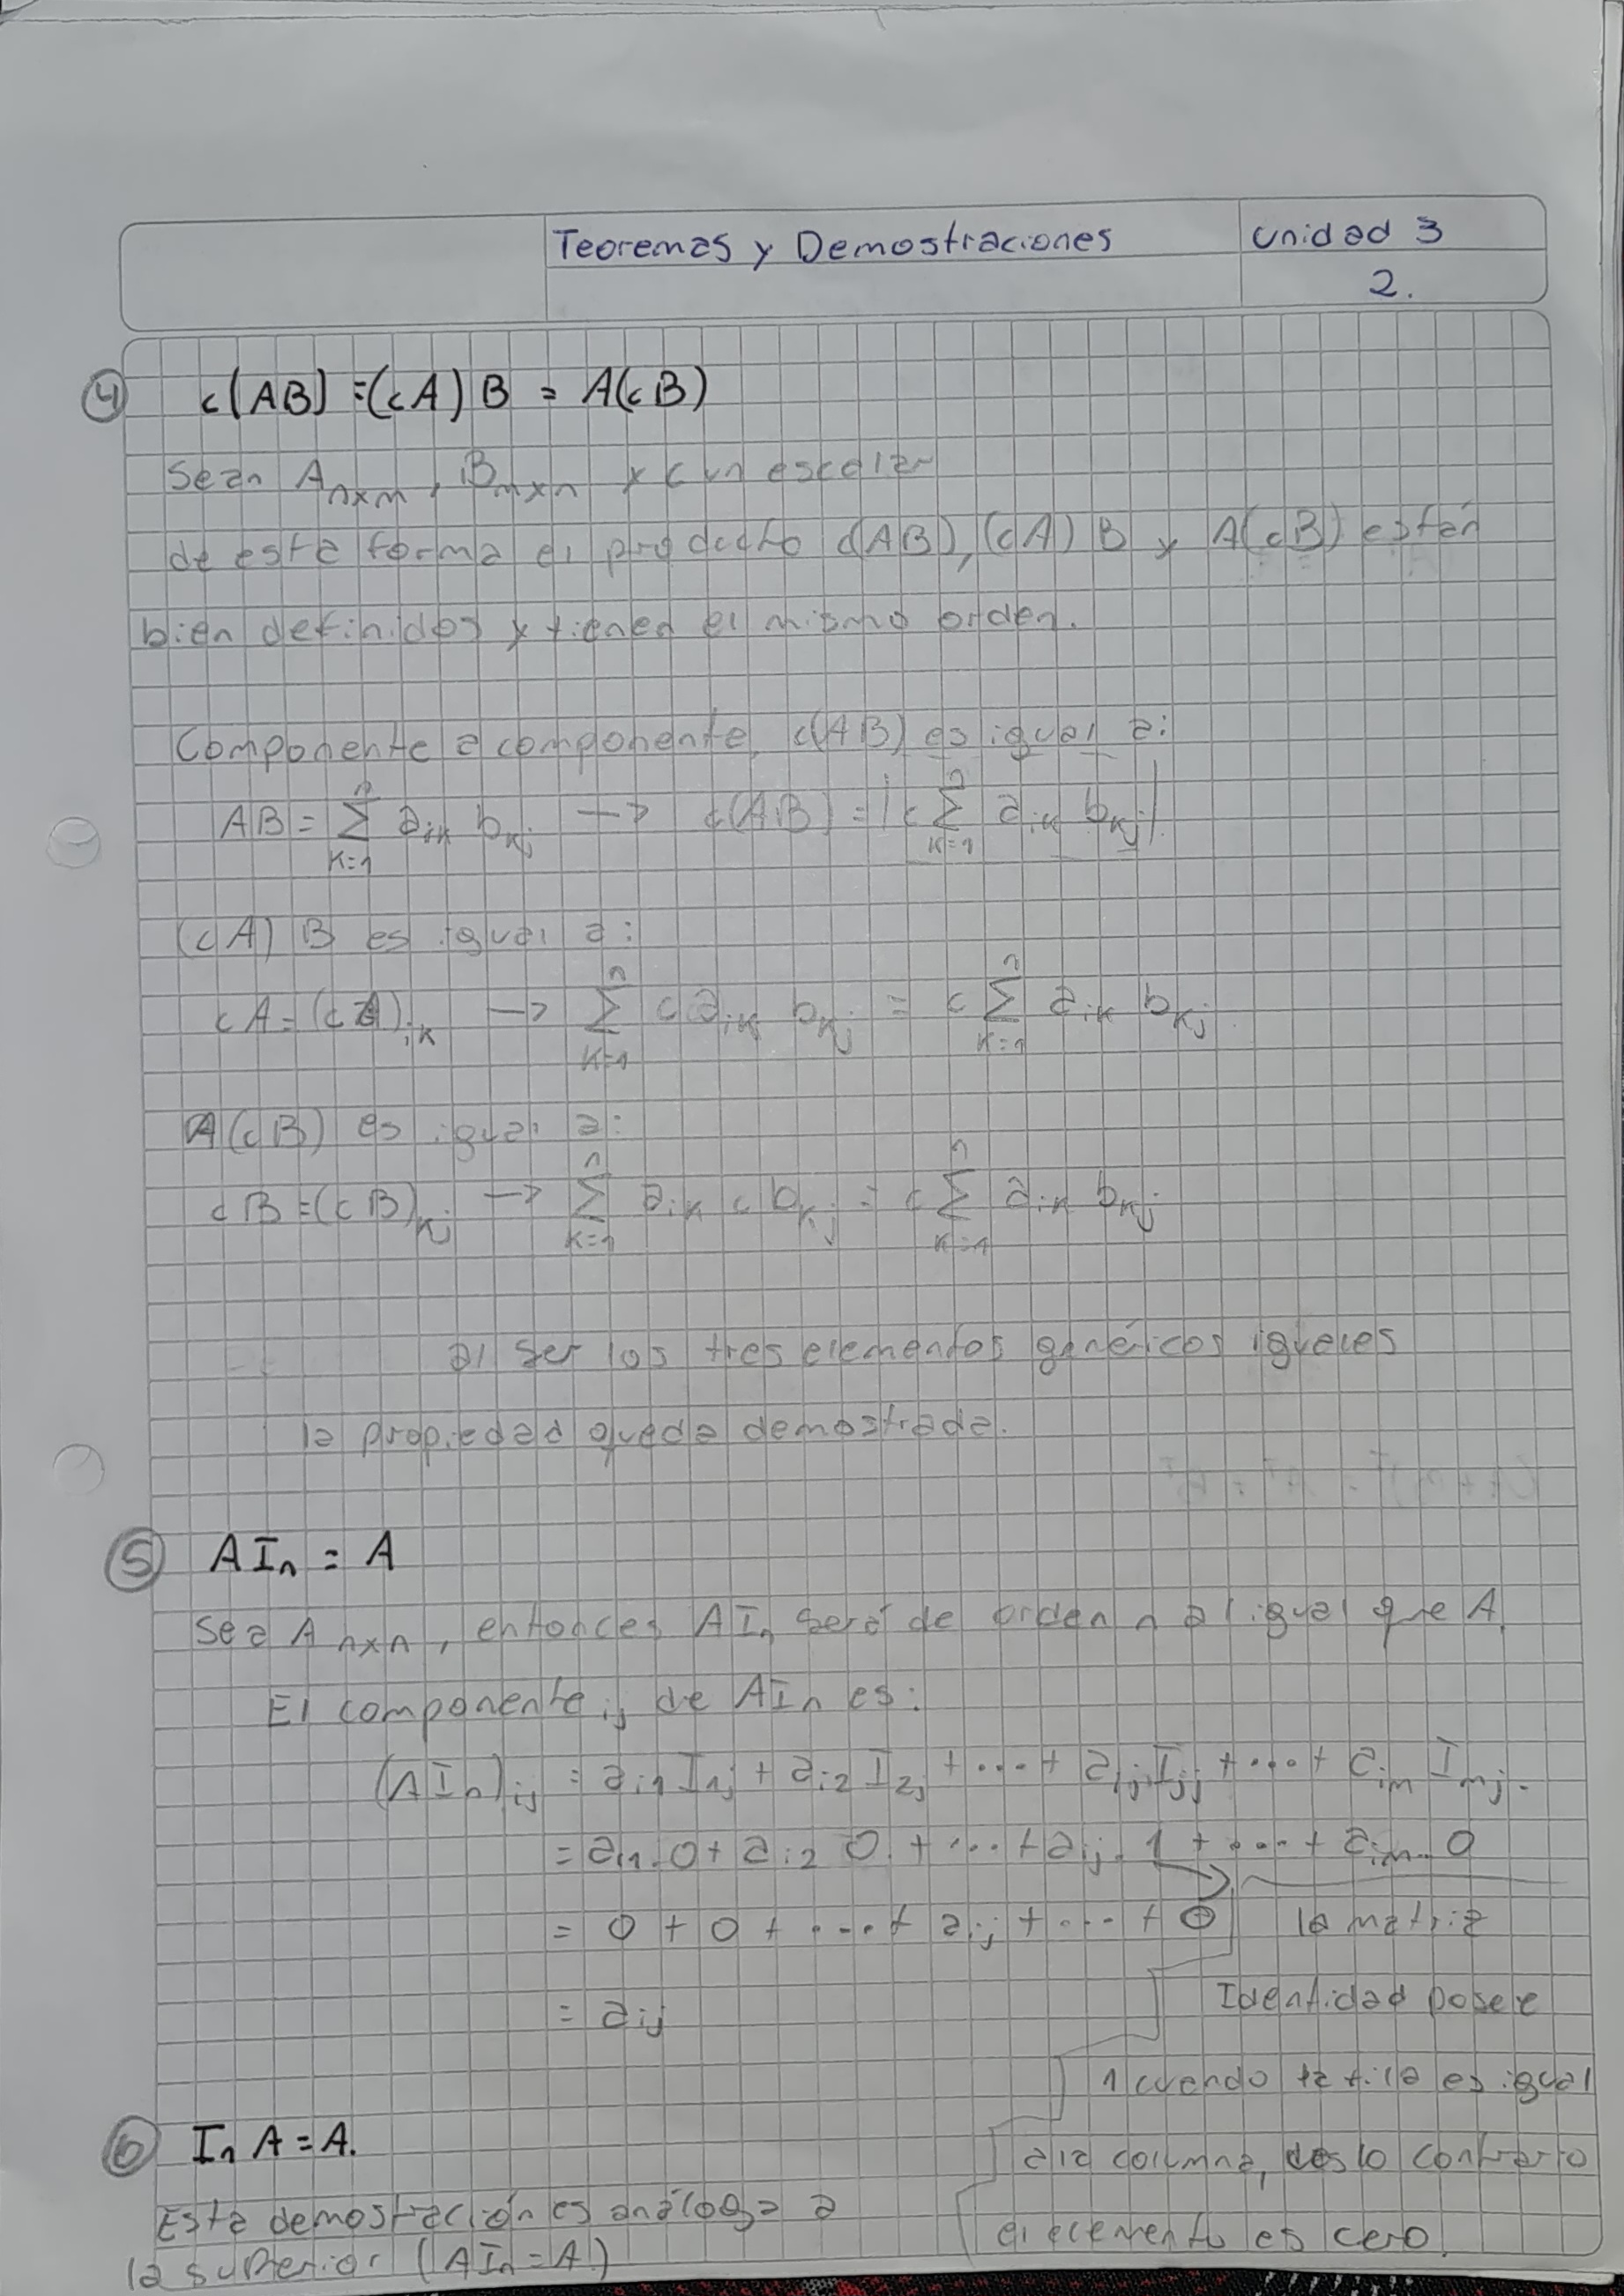 Teoremas y Demostraciones
Unidad 3
2.
④ c(AB) = (cA)B = A(cB)
Sean Aₙₓₘ, Bₘₓₙ y c un escalar
de esta forma el producto c(AB), (cA)B y A(cB) están
bien definidos y tienen el mismo orden.
Componente a componente, c(AB) es igual a:
AB = ∑ₖ₌₁ⁿ aᵢₖ bₖⱼ → c(AB) = |c ∑ₖ₌₁ⁿ aᵢₖ bₖⱼ|.
(cA)B es igual a:
cA = (cA)ᵢₖ → ∑ₖ₌₁ⁿ c aᵢₖ bₖⱼ = c ∑ₖ₌₁ⁿ aᵢₖ bₖⱼ
A(cB) es igual a:
cB = (cB)ₖⱼ → ∑ₖ₌₁ⁿ aᵢₖ c bₖⱼ = c ∑ₖ₌₁ⁿ aᵢₖ bₖⱼ
al ser los tres elementos genéricos iguales
la propiedad queda demostrada.
⑤ AIₙ = A
Sea Aₙₓₙ, entonces AIₙ será de orden n al igual que A.
El componente ᵢⱼ de AIₙ es:
(AIₙ)ᵢⱼ = aᵢ₁I₁ⱼ + aᵢ₂I₂ⱼ + ... + aᵢⱼIⱼⱼ + ... + aᵢₘIₘⱼ.
= aᵢ₁.0 + aᵢ₂ 0. + ... + aᵢⱼ.1 + ... + aᵢₘ.0
= 0 + 0 + ... + aᵢⱼ + ... + 0
= aᵢⱼ
la matriz
Identidad posee
1 cuando la fila es igual
a la columna, lo contrario
el elemento es cero.
⑥ IₙA = A.
Esta demostración es análoga a
la superior (AIₙ = A)